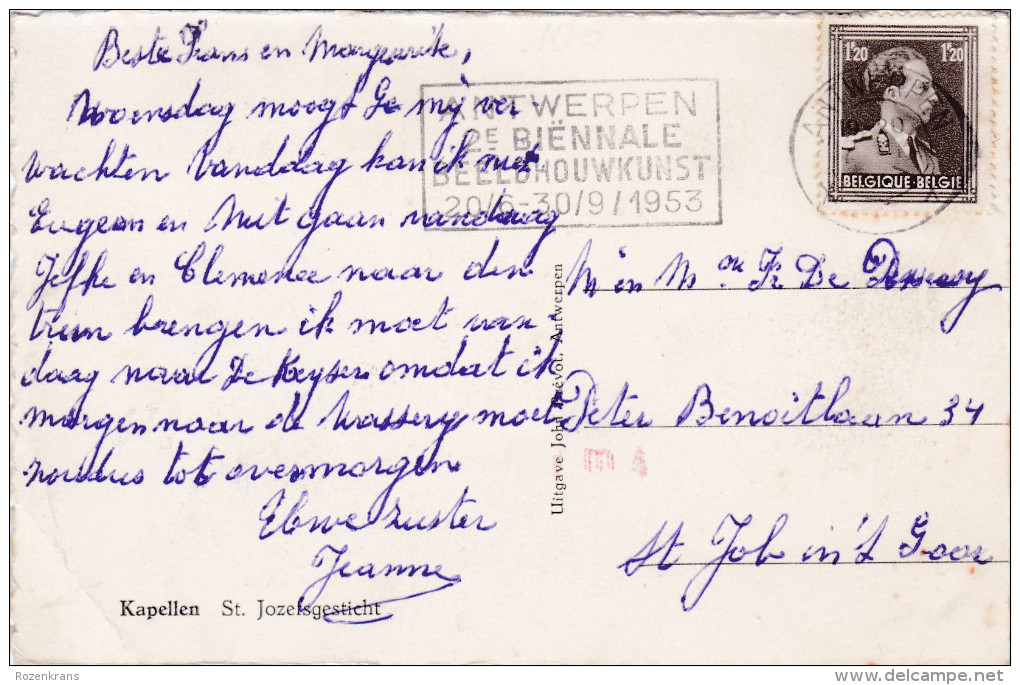 Beste Frans en Margueritte,
Woensdag moogt Ge mij ver-
wachten Vandaag kan ik niet
Eugeen en Mit gaan vandaag
Jefke en Clemence naar den
trein brengen ik moet van-
daag naar De Keyser omdat ik
morgen naar de Wassery moet
tot overmorgen
zuster
Jeanne
Kapellen St. Jozefsgesticht
ANTWERPEN
2E BIËNNALE
BEELDHOUWKUNST
20/6-30/9/1953
1F20 1F20
BELGIQUE·BELGIE
Uitgave John Prévot. Antwerpen
M en M Fr De
Peter Benoitlaan 34
m 4
St Job in 't Goor
Rozenkrans
www.delcampe.net